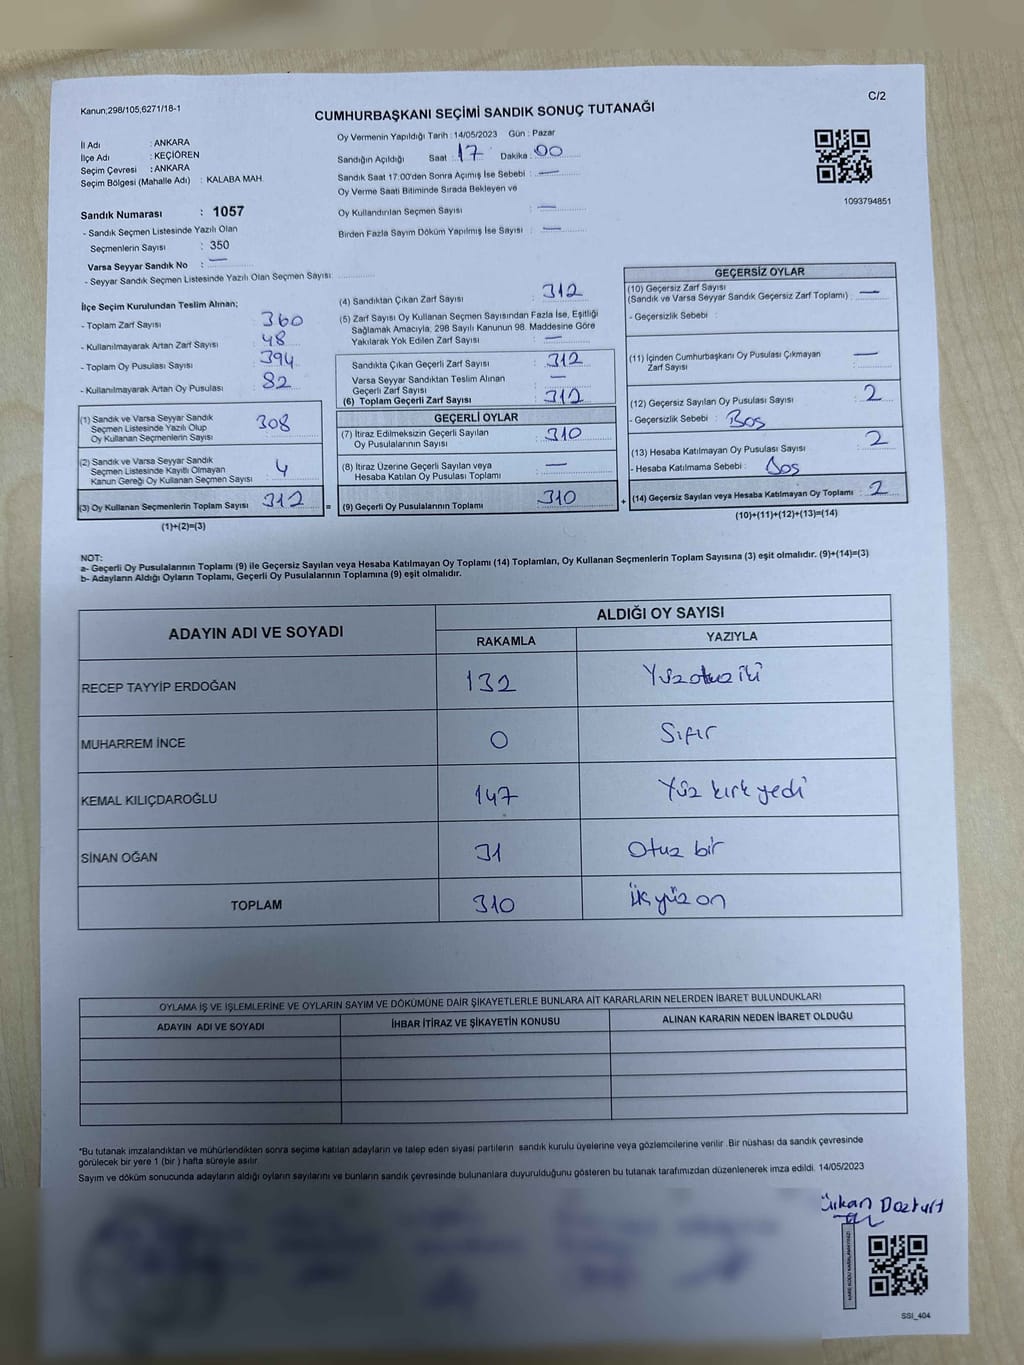 Kanun;298/105,6271/18-1
C/2
CUMHURBAŞKANI SEÇİMİ SANDIK SONUÇ TUTANAĞI
İl Adı : ANKARA
İlçe Adı : KEÇİÖREN
Seçim Çevresi : ANKARA
Seçim Bölgesi (Mahalle Adı) : KALABA MAH.
Sandık Numarası : 1057
- Sandık Seçmen Listesinde Yazılı Olan
Seçmenlerin Sayısı : 350
Varsa Seyyar Sandık No : —
- Seyyar Sandık Seçmen Listesinde Yazılı Olan Seçmen Sayısı:
Oy Vermenin Yapıldığı Tarih : 14/05/2023 Gün : Pazar
Sandığın Açıldığı Saat : 17 Dakika : 00
Sandık Saat 17:00'den Sonra Açımış İse Sebebi : —
Oy Verme Saati Bitiminde Sırada Bekleyen ve
Oy Kullandırılan Seçmen Sayısı : —
Birden Fazla Sayım Döküm Yapılmış İse Sayısı : —
1093794851
İlçe Seçim Kurulundan Teslim Alınan;
- Toplam Zarf Sayısı : 360
- Kullanılmayarak Artan Zarf Sayısı : 48
- Toplam Oy Pusulası Sayısı : 394
- Kullanılmayarak Artan Oy Pusulası : 82
(1) Sandık ve Varsa Seyyar Sandık
Seçmen Listesinde Yazılı Olup
Oy Kullanan Seçmenlerin Sayısı : 308
(2) Sandık ve Varsa Seyyar Sandık
Seçmen Listesinde Kayıtlı Olmayan
Kanun Gereği Oy Kullanan Seçmen Sayısı : 4
(3) Oy Kullanan Seçmenlerin Toplam Sayısı : 312 =
(1)+(2)=(3)
(4) Sandıktan Çıkan Zarf Sayısı : 312
(5) Zarf Sayısı Oy Kullanan Seçmen Sayısından Fazla İse, Eşitliği
Sağlamak Amacıyla; 298 Sayılı Kanunun 98. Maddesine Göre
Yakılarak Yok Edilen Zarf Sayısı : —
Sandıkta Çıkan Geçerli Zarf Sayısı : 312
Varsa Seyyar Sandıktan Teslim Alınan
Geçerli Zarf Sayısı : —
(6) Toplam Geçerli Zarf Sayısı : 312
GEÇERLİ OYLAR
(7) İtiraz Edilmeksizin Geçerli Sayılan
Oy Pusulalarının Sayısı : 310
(8) İtiraz Üzerine Geçerli Sayılan veya
Hesaba Katılan Oy Pusulası Toplamı : —
(9) Geçerli Oy Pusulalarının Toplamı : 310 +
GEÇERSİZ OYLAR
(10) Geçersiz Zarf Sayısı
(Sandık ve Varsa Seyyar Sandık Geçersiz Zarf Toplamı) : —
- Geçersizlik Sebebi :
(11) İçinden Cumhurbaşkanı Oy Pusulası Çıkmayan
Zarf Sayısı : —
(12) Geçersiz Sayılan Oy Pusulası Sayısı : 2
- Geçersizlik Sebebi : Boş
(13) Hesaba Katılmayan Oy Pusulası Sayısı : 2
- Hesaba Katılmama Sebebi : Boş
(14) Geçersiz Sayılan veya Hesaba Katılmayan Oy Toplamı : 2
(10)+(11)+(12)+(13)=(14)
NOT:
a- Geçerli Oy Pusulalarının Toplamı (9) ile Geçersiz Sayılan veya Hesaba Katılmayan Oy Toplamı (14) Toplamları, Oy Kullanan Seçmenlerin Toplam Sayısına (3) eşit olmalıdır. (9)+(14)=(3)
b- Adayların Aldığı Oyların Toplamı, Geçerli Oy Pusulalarının Toplamına (9) eşit olmalıdır.
ADAYIN ADI VE SOYADI
ALDIĞI OY SAYISI
RAKAMLA YAZIYLA
RECEP TAYYİP ERDOĞAN 132 Yüzotuz iki
MUHARREM İNCE 0 Sıfır
KEMAL KILIÇDAROĞLU 147 Yüz kırk yedi
SİNAN OĞAN 31 Otuz bir
TOPLAM 310 üç yüz on
OYLAMA İŞ VE İŞLEMLERİNE VE OYLARIN SAYIM VE DÖKÜMÜNE DAİR ŞİKAYETLERLE BUNLARA AİT KARARLARIN NELERDEN İBARET BULUNDUKLARI
ADAYIN ADI VE SOYADI İHBAR İTİRAZ VE ŞİKAYETİN KONUSU ALINAN KARARIN NEDEN İBARET OLDUĞU
*Bu tutanak imzalandıktan ve mühürlendikten sonra seçime katılan adayların ve talep eden siyasi partilerin sandık kurulu üyelerine veya gözlemcilerine verilir .Bir nüshası da sandık çevresinde
görülecek bir yere 1 (bir ) hafta süreyle asılır.
Sayım ve döküm sonucunda adayların aldığı oyların sayılarını ve bunların sandık çevresinde bulunanlara duyurulduğunu gösteren bu tutanak tarafımızdan düzenlenerek imza edildi. 14/05/2023
SSI_404